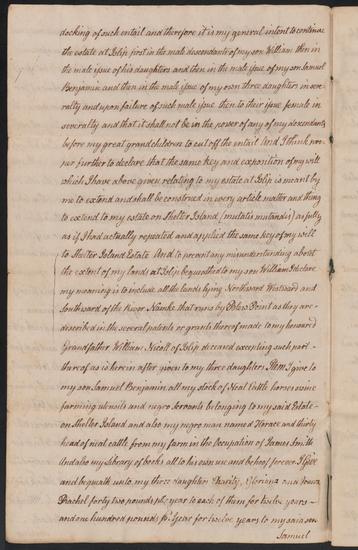 docking of such entail and therefore it is my general intent to continue
the estate at Islip first in the male descendants of my son William then in
the male issue of his daughters and then in the male issue of my son Samuel
Benjamin and then in the male issue of my own three daughters in seve-
ralty and upon failure of such male issue then to their issue female in
severalty and that it shall not be in the power of any of my descendants
before my great grand children to cut off the entail And I think pro-
per further to declare that the same key and exposition of my will
which I have above given relating to my estate at Islip is meant by
me to extend and shall be construed in every article matter and thing
to extend to my estate on Shelter Island (mutatis mutandis) as fully
as if I had actually repeated and applied the same key of my will
to Shelter Island Estate And to prevent any misunderstanding about
the extent of my lands at Islip bequeathed to my son William I declare
my meaning is to include all the lands lying Northward Westward and
Southward of the River that runs by Point as they are
described in the several patents or grants thereof made to my honoured
Grandfather William Nicoll of Islip deceased excepting such part
thereof as is herein after given to my three daughters Item I give to
my son Samuel Benjamin all my stock of Neat Cattle horses swine
farming utensils and negro Servants belonging to my said Estate
on Shelter Island and also my negro man named Horace and thirty
head of neat cattle from my farm in the Occupation of James Smith
And also my Library of books all to his own use and behoof forever I Give
and bequeath unto my three daughters Charity, Gloriana and Joanna
Rachel forty two pounds pr. year to each of them for twelve years
and one hundred pounds pr. Year for twelve years to my said son
Samuel